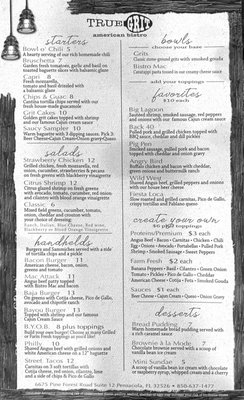 TRUE GRIT
american bistro
starters
Bowl o' Chili 5
A hearty serving of our rich homemade chili
Bruschetta 7
Garden fresh tomatoes, garlic and basil on
toasted baguette slices with balsamic glaze
Capri 8
Fresh mozzarella,
tomato and basil drizzled with
a balsamic glaze
Chips & Guac 8
Cantina tortilla chips served with our
fresh house-made guacamole
Grit Cakes 10
Golden grit cakes topped with shrimp
and our famous Cajun cream sauce
Saucy Sampler 10
Warm baguette with 3 dipping sauces. Pick 3:
Beer Cheese-Cajun Cream-Queso-Onion gravy-Queso
salads
Strawberry Chicken 12
Grilled chicken, fresh mozzarella, red
onion, cucumber, strawberries & pecans
on fresh greens with blackberry vinaigrette
Citrus Shrimp 12
Citrus glazed shrimp on fresh greens
with avocado, tomato, cucumber, red onion
and cilantro with blood orange vinaigrette
Classic 8
Mixed field greens, cucumber, tomato,
onion, cheddar and crouton with
your choice of dressing:
Ranch, Italian, Blue Cheese, Red wine,
Blackberry or Blood Orange Vinaigrette
handhelds
Burgers and Sammiches served with a side
of tortilla chips and a pickle
Bacon Burger 13
American cheese, bacon,
greens and tomato
Mac Attack 13
Angus beef patty topped
with Bistro Mac and bacon
Baja Burger 13
On greens with Cotija cheese, Pico de Gallo,
avocado and chipotle ranch
Bayou Burger 13
Topped with shrimp and our famous
Cajun Cream Sauce
B.Y.O.B. 8 plus toppings
Build your own burger! Choose as many Grilled
or Farm Fresh toppings as you'd like!
Philly 10
Shaved Angus beef with grilled onions and
white American cheese on a 12" baguette
Street Tacos 12
Carnitas on 3 soft tortillas with
Cotija cheese, red onion, cilantro, lime
bowls
choose your base
Grits
Classic stone-ground grits with smoked gouda
Bistro Mac
Cavatappi pasta tossed in our creamy cheese sauce
add your toppings
favorites
$10 each
Big Lagoon
Sauteed shrimp, smoked sausage, red peppers
and onions with our famous Cajun cream sauce
Chipper
Pulled pork and grilled chicken topped with
BBQ sauce, cheddar and dill pickles
Pig Pen
Smoked sausage, pulled pork and bacon
topped with cheddar and onion gravy
Angry Bird
Buffalo chicken and bacon with cheddar,
green onions and buttermilk ranch
Wild West
Shaved Angus beef, grilled peppers and onions
with our house beer cheese
Fiesta Loca
Slow roasted and grilled carnitas, Pico de Gallo,
crispy tortillas and Poblano queso
create your own
$6 plus toppings
Proteins/Premium $3 each
Angus Beef • Bacon • Carnitas • Chicken • Chili
Egg • Onions • Avocado • Portabellas • Pulled Pork
Shrimp • Smoked Sausage • Sweet Peppers
Farm Fresh $2 each
Banana Peppers • Basil • Cilantro • Green Onion
Tomato • Pickles • Pico de Gallo • Cheddar
American Cheese • Cotija • Feta • Smoked Gouda
Sauces $1 each
Beer Cheese • Cajun Cream • Queso • Onion Gravy
desserts
Bread Pudding 7
Warm homemade bread pudding served with
a rich caramel sauce
Brownie à la Mode 7
Chocolate brownie served with a scoop of
vanilla bean ice cream
Mini Sundae 5
A scoop of vanilla bean ice cream with chocolate
or raspberry syrup, whipped cream and a cherry
6675 Pine Forest Road Suite 12 Pensacola, FL 32526 • 850-637-1477